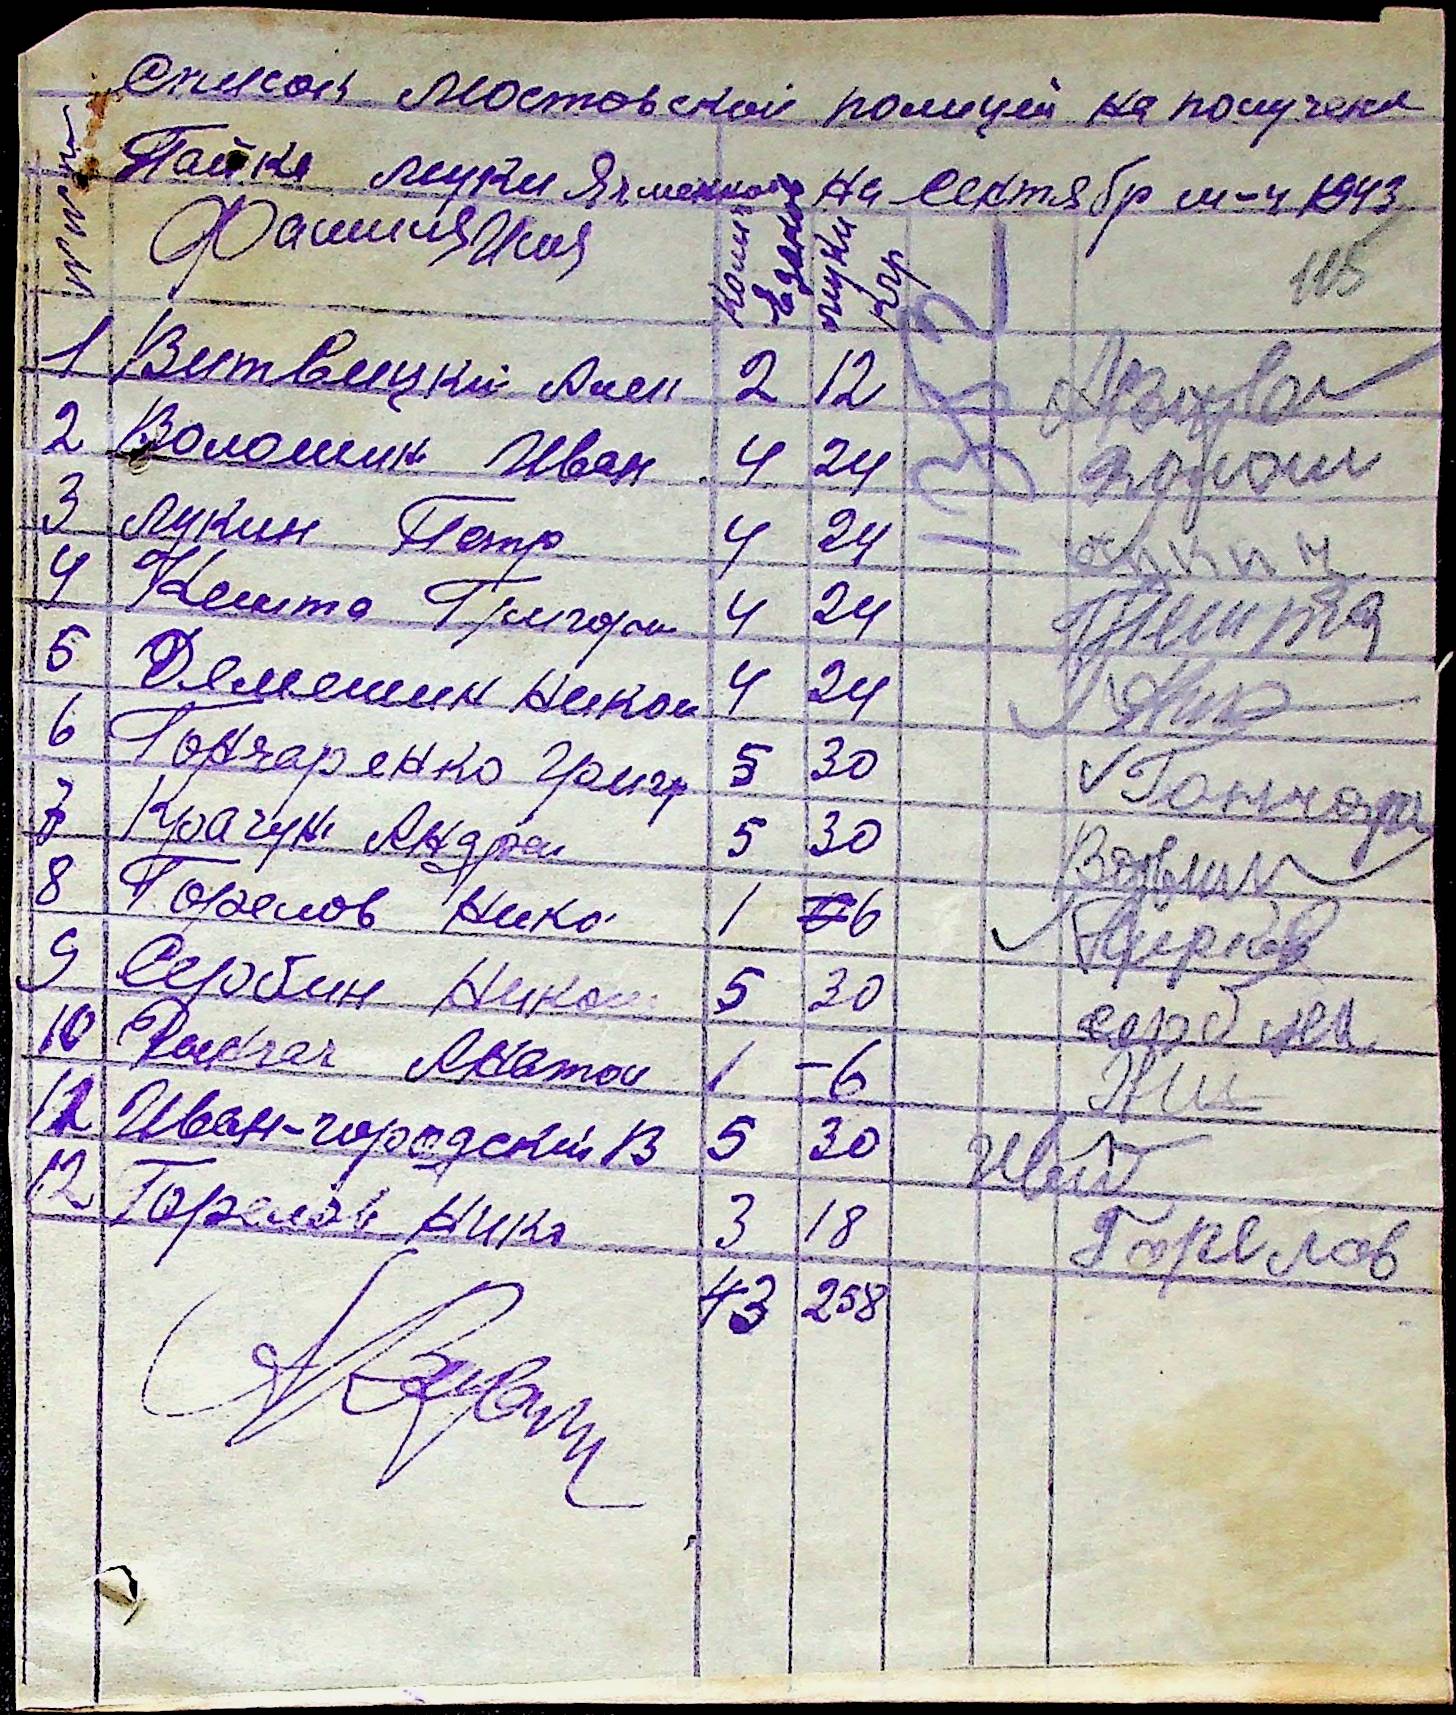 Список Мостовской полиций на получени
Пайка муки Ячменной на Сентябр м-ц 1943
№№ пп Фамилия Имя Колич Едоков муки кгр
115
132
1 Витвицкий Алек 2 12
2 Волошин Иван 4 24 Волош
3 Лукин Петр 4 24 Лукин
4 Кешта Григори 4 24
5 Демешин Никол 4 24
6 Гончаренко Григр 5 30 Гончар
7 Крачун Андреи 5 30
8 Горелов Нико 1 6
9 Сербин Никол 5 30 сербин
10 Ткачач Анатол 1 -6
11 Иван-городский В 5 30 Ивй
12 Горелов Нико 3 18 Горелов
43 258